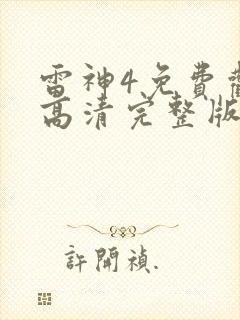 雷神4免費
高清完整版
許開禎.